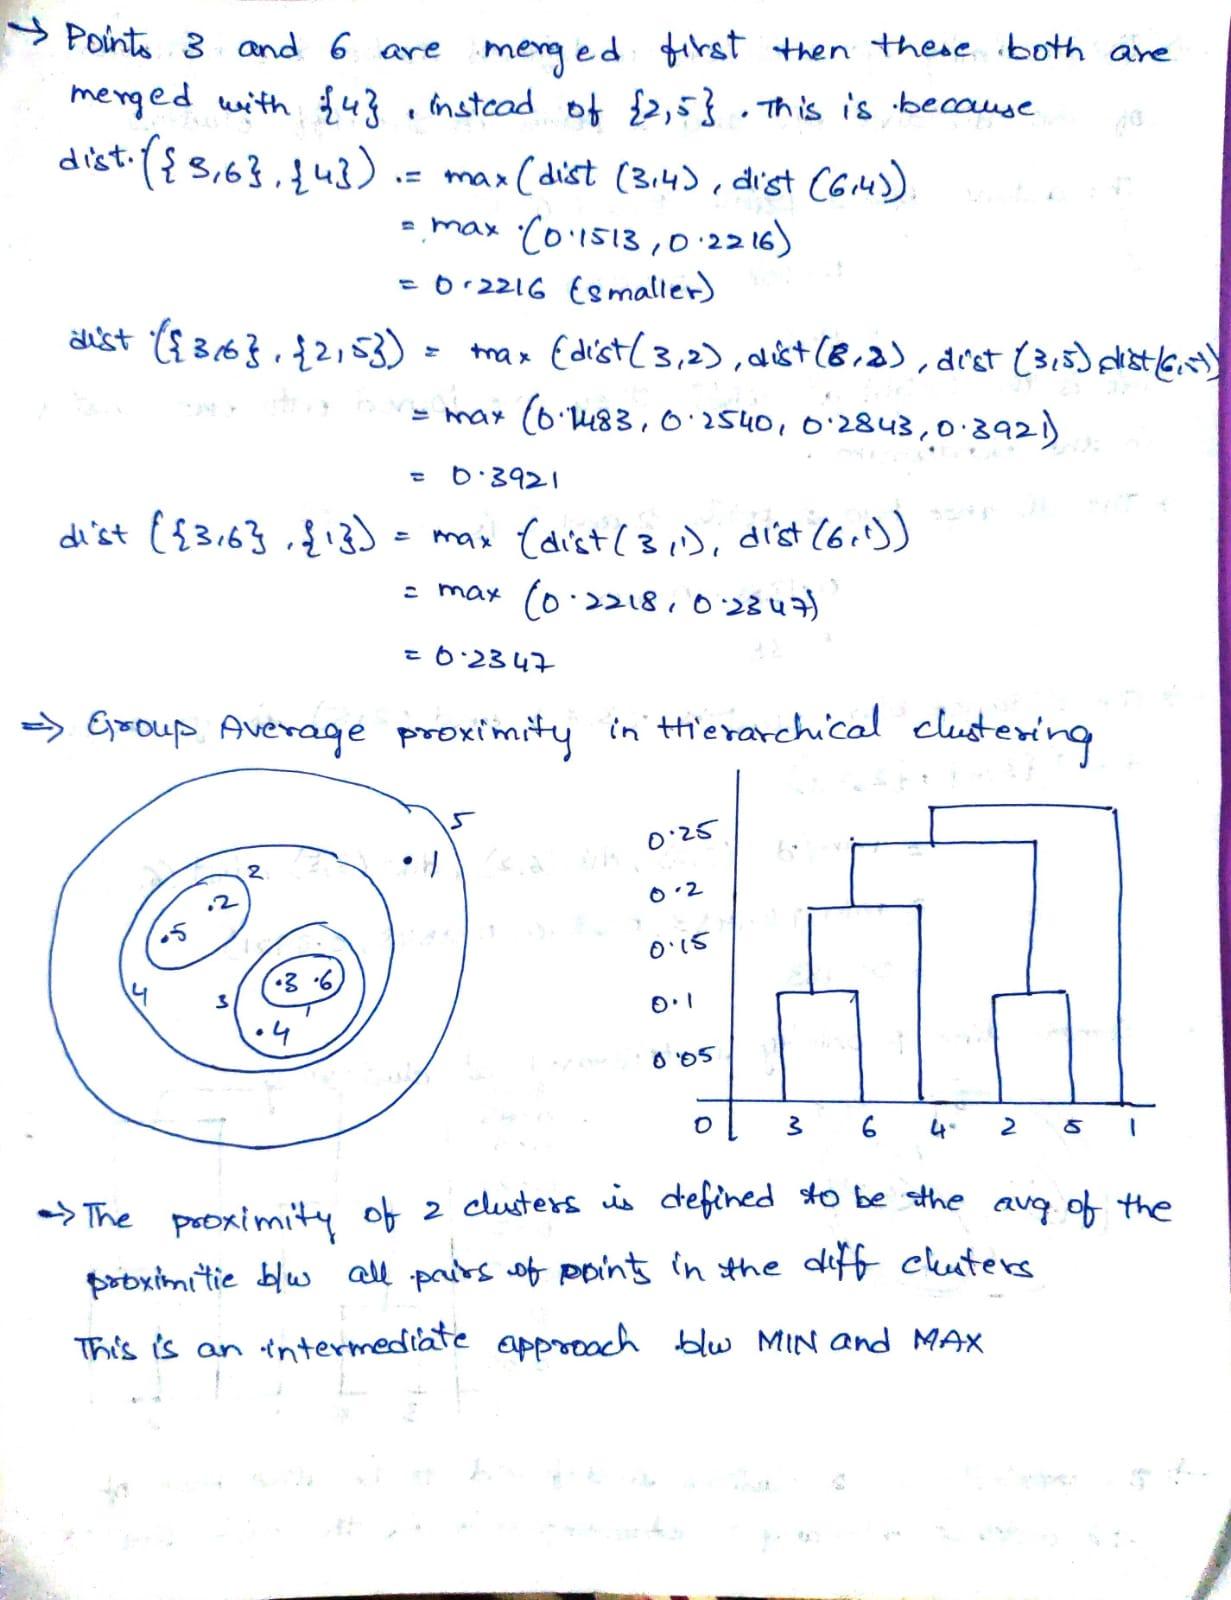 → Points 3 and 6 are merged first then these both are
merged with {4}, instead of {2,5}. This is because
dist.({3,6}, {4}) = max(dist (3,4), dist (6,4))
= max (0.1513, 0.2216)
= 0.2216 (smaller)
dist ({3,6}, {2,5}) = max (dist(3,2), dist(6,2), dist (3,5) dist(6,5))
= max (0.1483, 0.2540, 0.2843, 0.3921)
= 0.3921
dist ({3,6}, {1}) = max (dist(3,1), dist(6,1))
= max (0.2218, 0.2347)
= 0.2347
⇒ Group Average proximity in Hierarchical clustering
5
.1
2
.2
.5
.3 .6
4
3
1
.4
0.25
0.2
0.15
0.1
0.05
0 3 6 4 2 5 1
→ The proximity of 2 clusters is defined to be the avg of the
proximitie b/w all pairs of points in the diff cluters
This is an intermediate approach b/w MIN and MAX